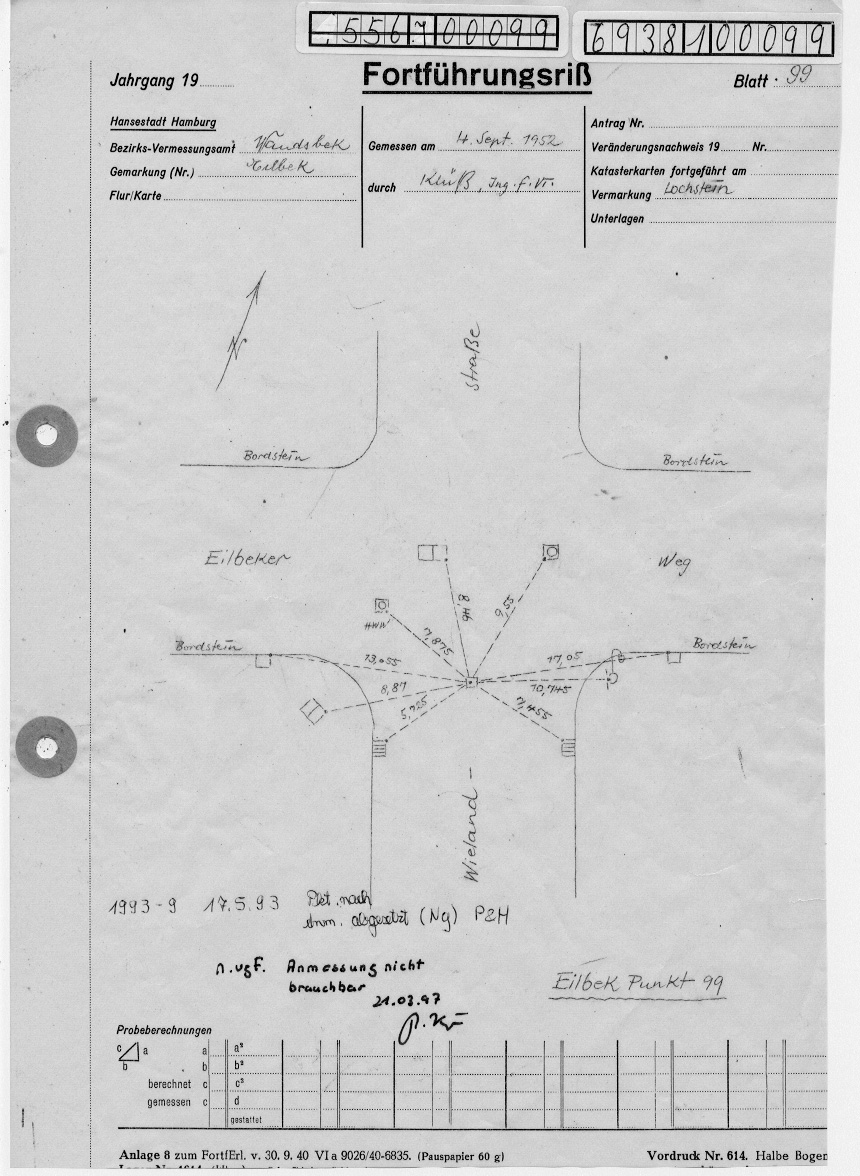 556700099
6938100099
Jahrgang 19
Fortführungsriß
Blatt 99
Hansestadt Hamburg
Bezirks-Vermessungsamt Wandsbek
Gemarkung (Nr.) Eilbek
Flur/Karte
Gemessen am 4. Sept. 1952
durch Klüß, Ing. f. VT.
Antrag Nr.
Veränderungsnachweis 19 Nr.
Katasterkarten fortgeführt am
Vermarkung Lochstein
Unterlagen
N
straße
Bordstein
Bordstein
Eilbeker
Weg
HWW
8,46
9,55
7,875
Bordstein
Bordstein
13,055
17,05
8,87
10,745
5,725
7,455
Wieland-
1993-9 17.5.93 Pkt. nach
Anm. abgesetzt (Ng) P2H
n. vgf. Anmessung nicht
brauchbar
Eilbek Punkt 99
Probeberechnungen
c a a a²
b b b²
berechnet c c²
gemessen c d
gestattet
Anlage 8 zum FortfErl. v. 30. 9. 40 VI a 9026/40-6835. (Pauspapier 60 g)
Vordruck Nr. 614. Halbe Bogen